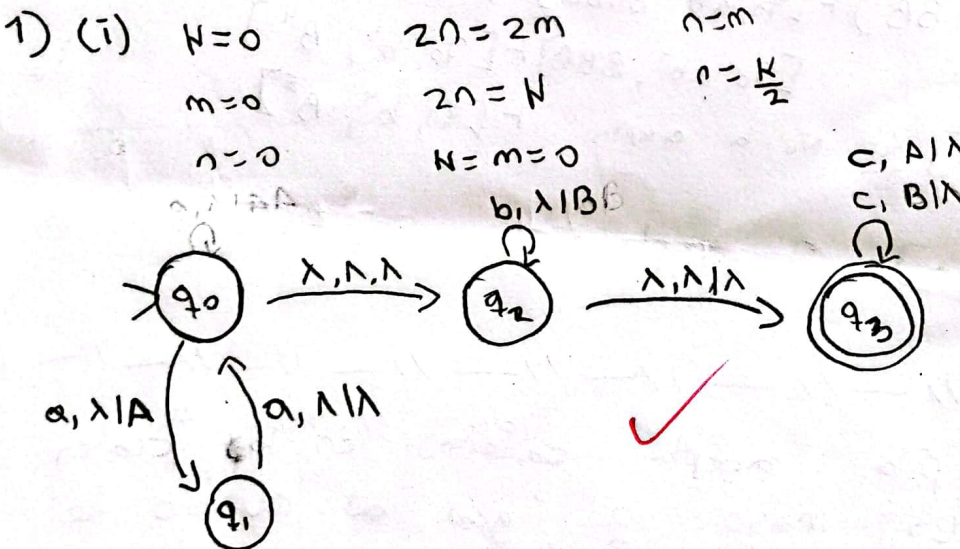 1) (i) N=0 2n=2m n=m
m=0 2n=N n=K/2
n=0 N=m=0
c, A/λ
b, λ/B c, B/λ
q0 λ, λ, λ q2 λ, λ/λ q3
a, λ/A a, λ/λ
q1